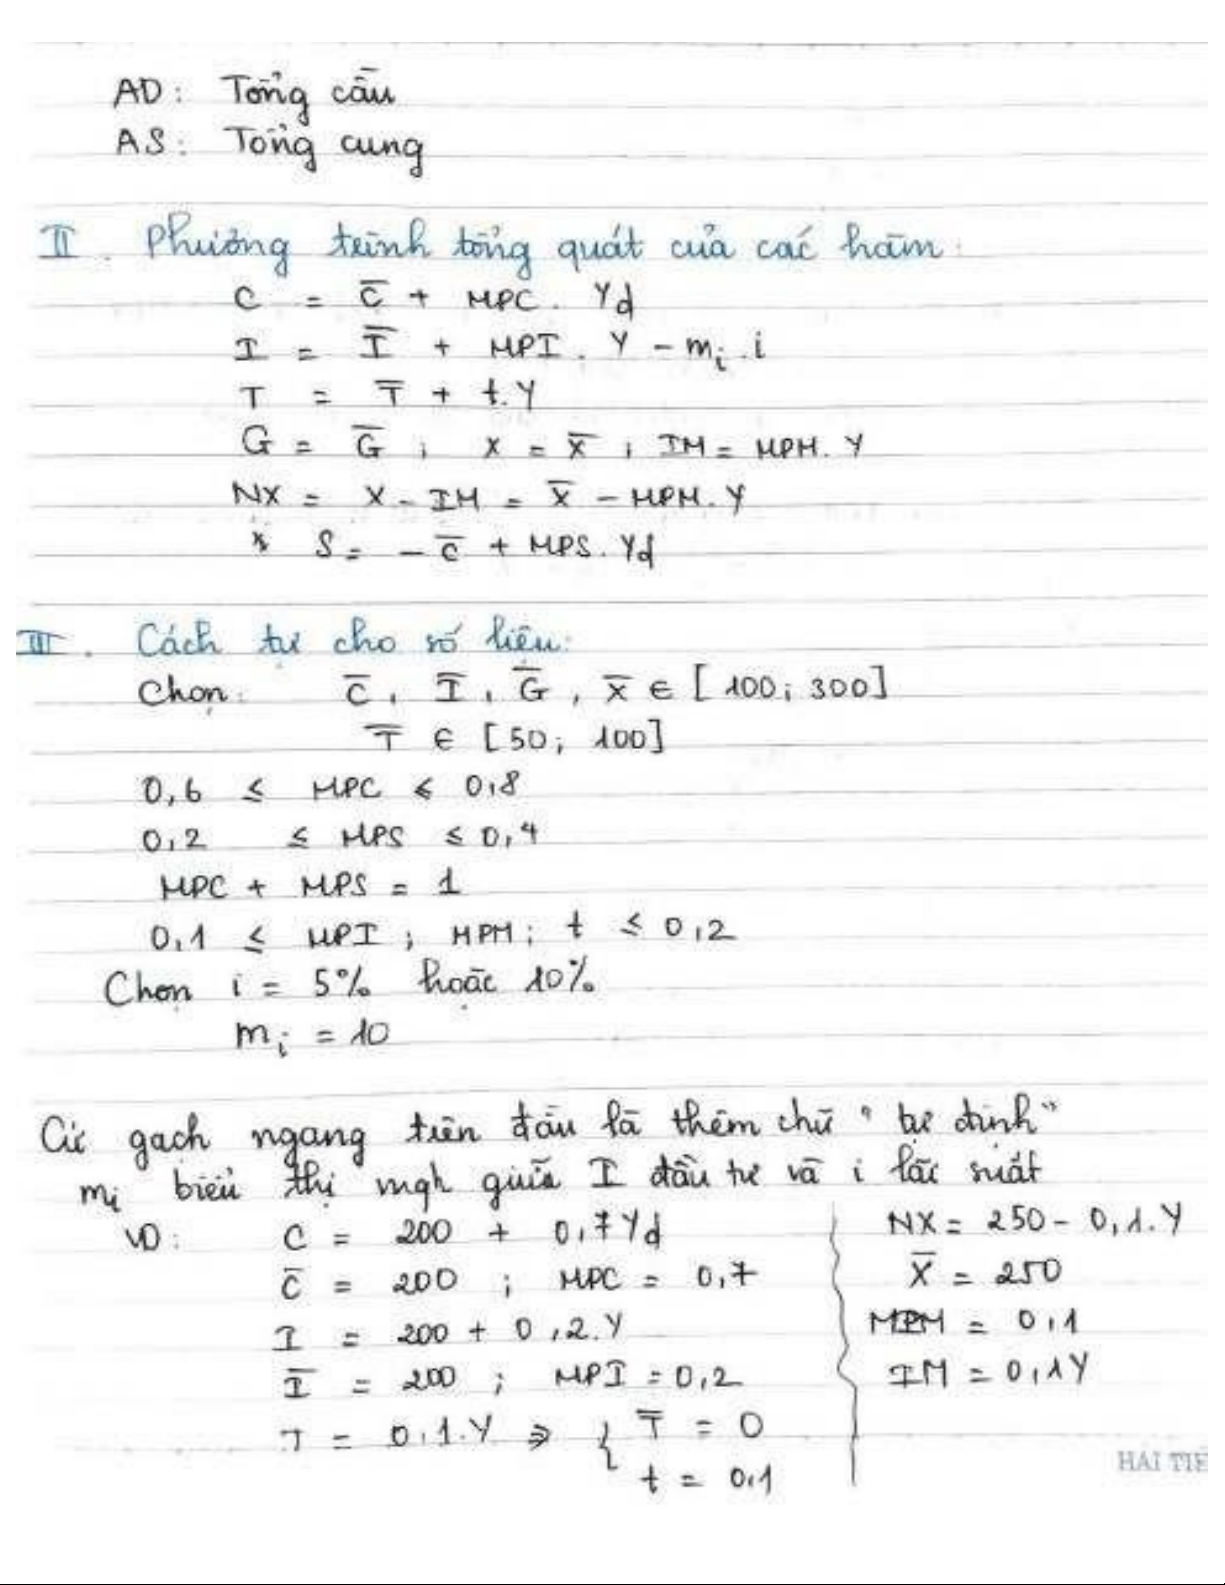 AD : Tổng cầu
AS : Tổng cung
II . Phương trình tổng quát của các hàm :
C = C̅ + MPC . Yd
I = I̅ + MPI . Y - mᵢ . i
T = T̅ + t.Y
G = G̅ ; X = X̅ ; IM = MPM. Y
NX = X - IM = X̅ - MPM. Y
* S = - C̅ + MPS. Yd
III . Cách tự cho số liệu:
Chọn: C̅ , I̅ , G̅ , X̅ ∈ [ 100; 300]
T̅ ∈ [50; 100]
0,6 ≤ MPC ≤ 0,8
0,2 ≤ MPS ≤ 0,4
MPC + MPS = 1
0,1 ≤ MPI ; MPM; t ≤ 0,2
Chọn i = 5% hoặc 10%
mᵢ = 10
Cứ gạch ngang trên đầu là thêm chữ " tự định "
mᵢ biểu thị mqh giữa I đầu tư và i lãi suất
VD: C = 200 + 0,7Yd
C̅ = 200 ; MPC = 0,7
I = 200 + 0,2.Y
I̅ = 200 ; MPI = 0,2
T = 0,1.Y ⇒ { T̅ = 0
t = 0,1
NX = 250 - 0,1.Y
X̅ = 250
MPM = 0,1
IM = 0,1Y